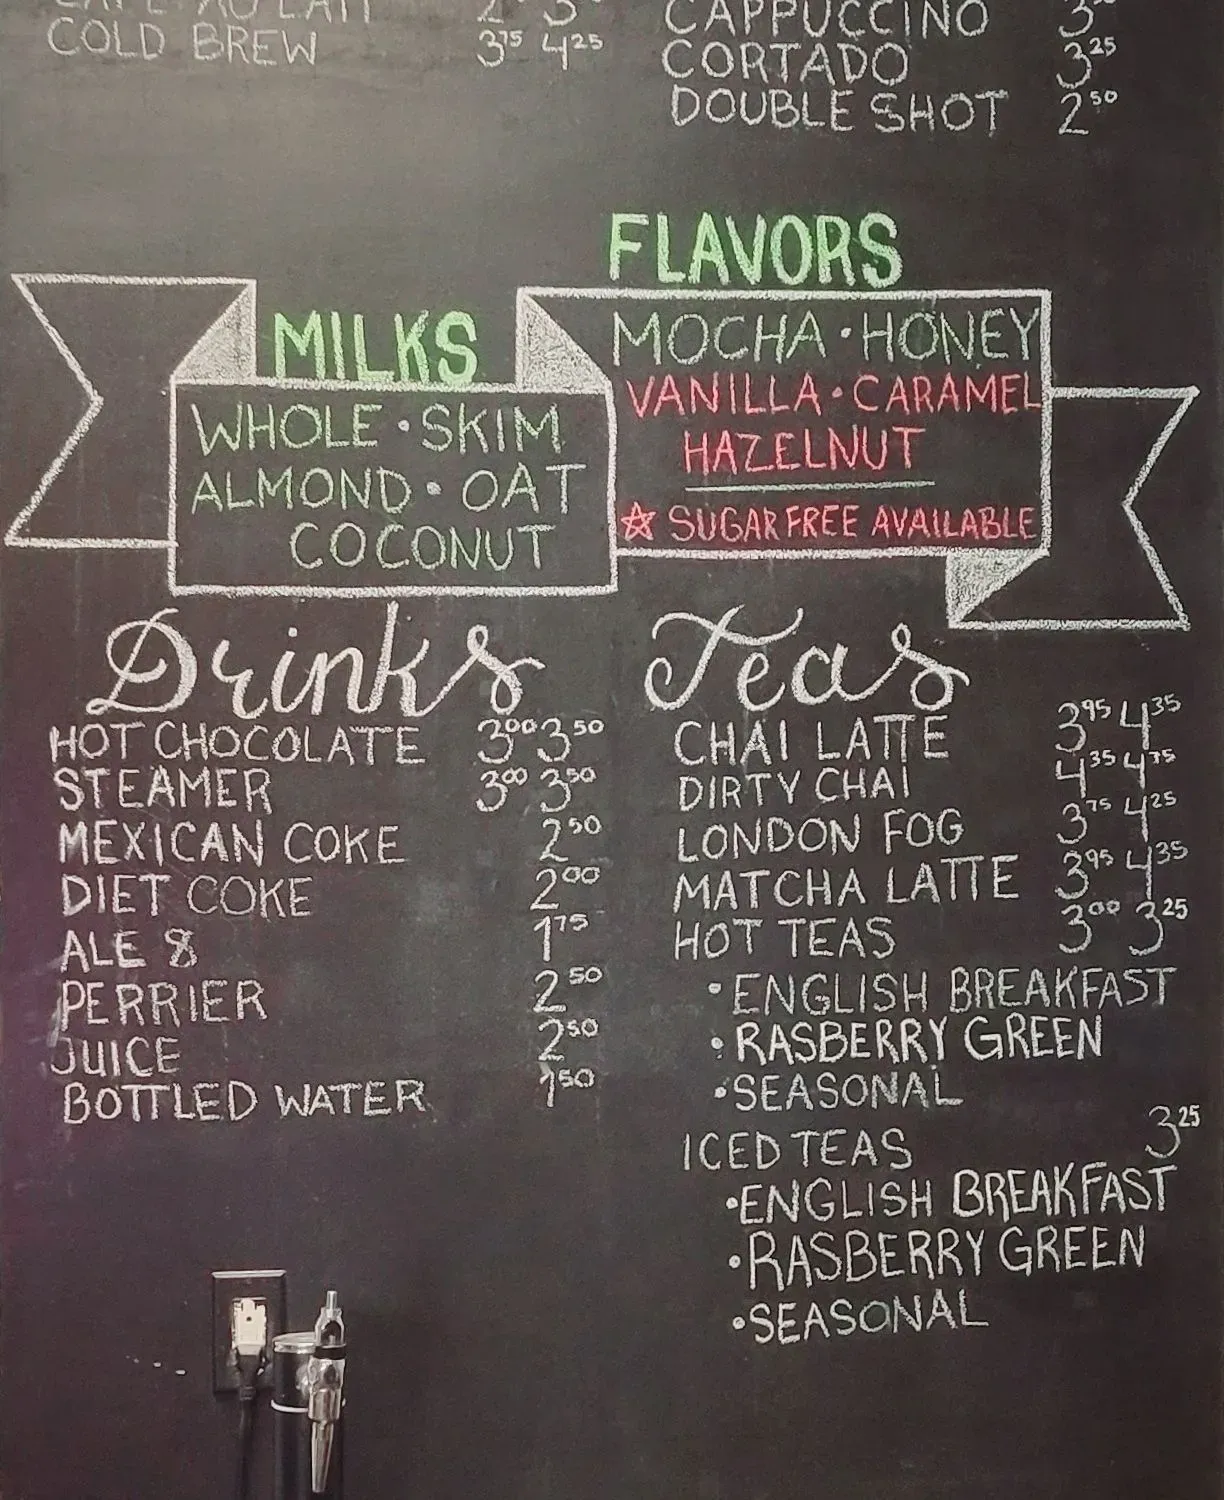 COLD BREW 3 75 4 25
CAPPUCCINO 3
CORTADO 3 25
DOUBLE SHOT 2 50
MILKS
WHOLE • SKIM
ALMOND • OAT
COCONUT
FLAVORS
MOCHA • HONEY
VANILLA • CARAMEL
HAZELNUT
☆ SUGAR FREE AVAILABLE
Drinks
HOT CHOCOLATE 3 00 3 50
STEAMER 3 00 3 50
MEXICAN COKE 2 50
DIET COKE 2 00
ALE 8 1 75
PERRIER 2 50
JUICE 2 50
BOTTLED WATER 1 50
Teas
CHAI LATTE 3 95 4 35
DIRTY CHAI 4 35 4 75
LONDON FOG 3 75 4 25
MATCHA LATTE 3 95 4 35
HOT TEAS 3 00 3 25
• ENGLISH BREAKFAST
• RASBERRY GREEN
• SEASONAL
ICED TEAS 3 25
• ENGLISH BREAKFAST
• RASBERRY GREEN
• SEASONAL